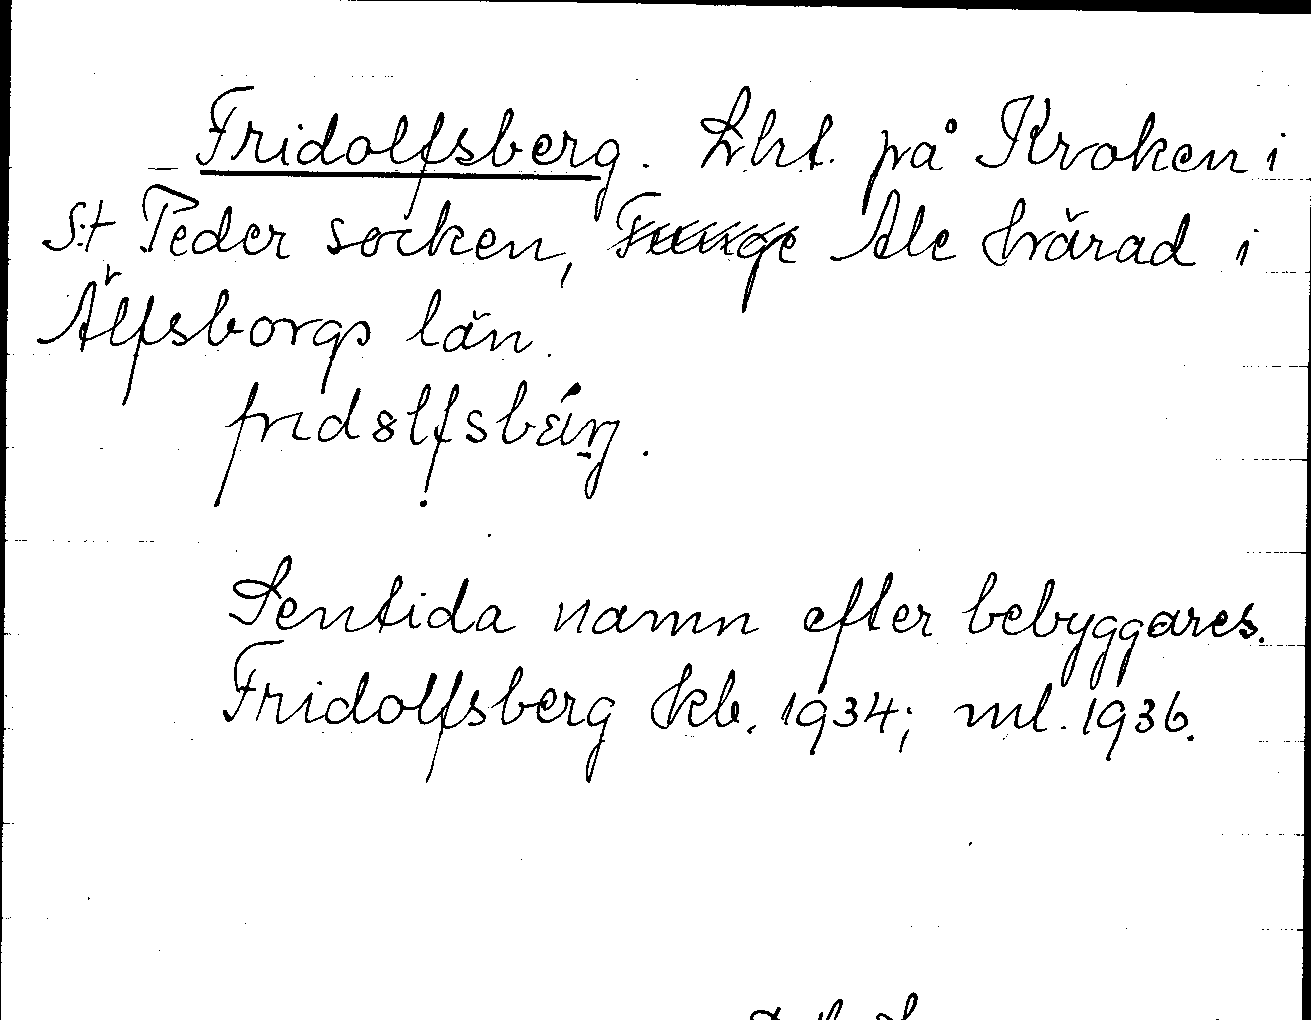 Fridolfsberg. Lht. på Kroken i
S:t Peder socken, Ale härad i
Älfsborgs län.
fridolfsbärg.
Sentida namn efter bebyggares.
Fridolfsberg kb. 1934; ml. 1936.